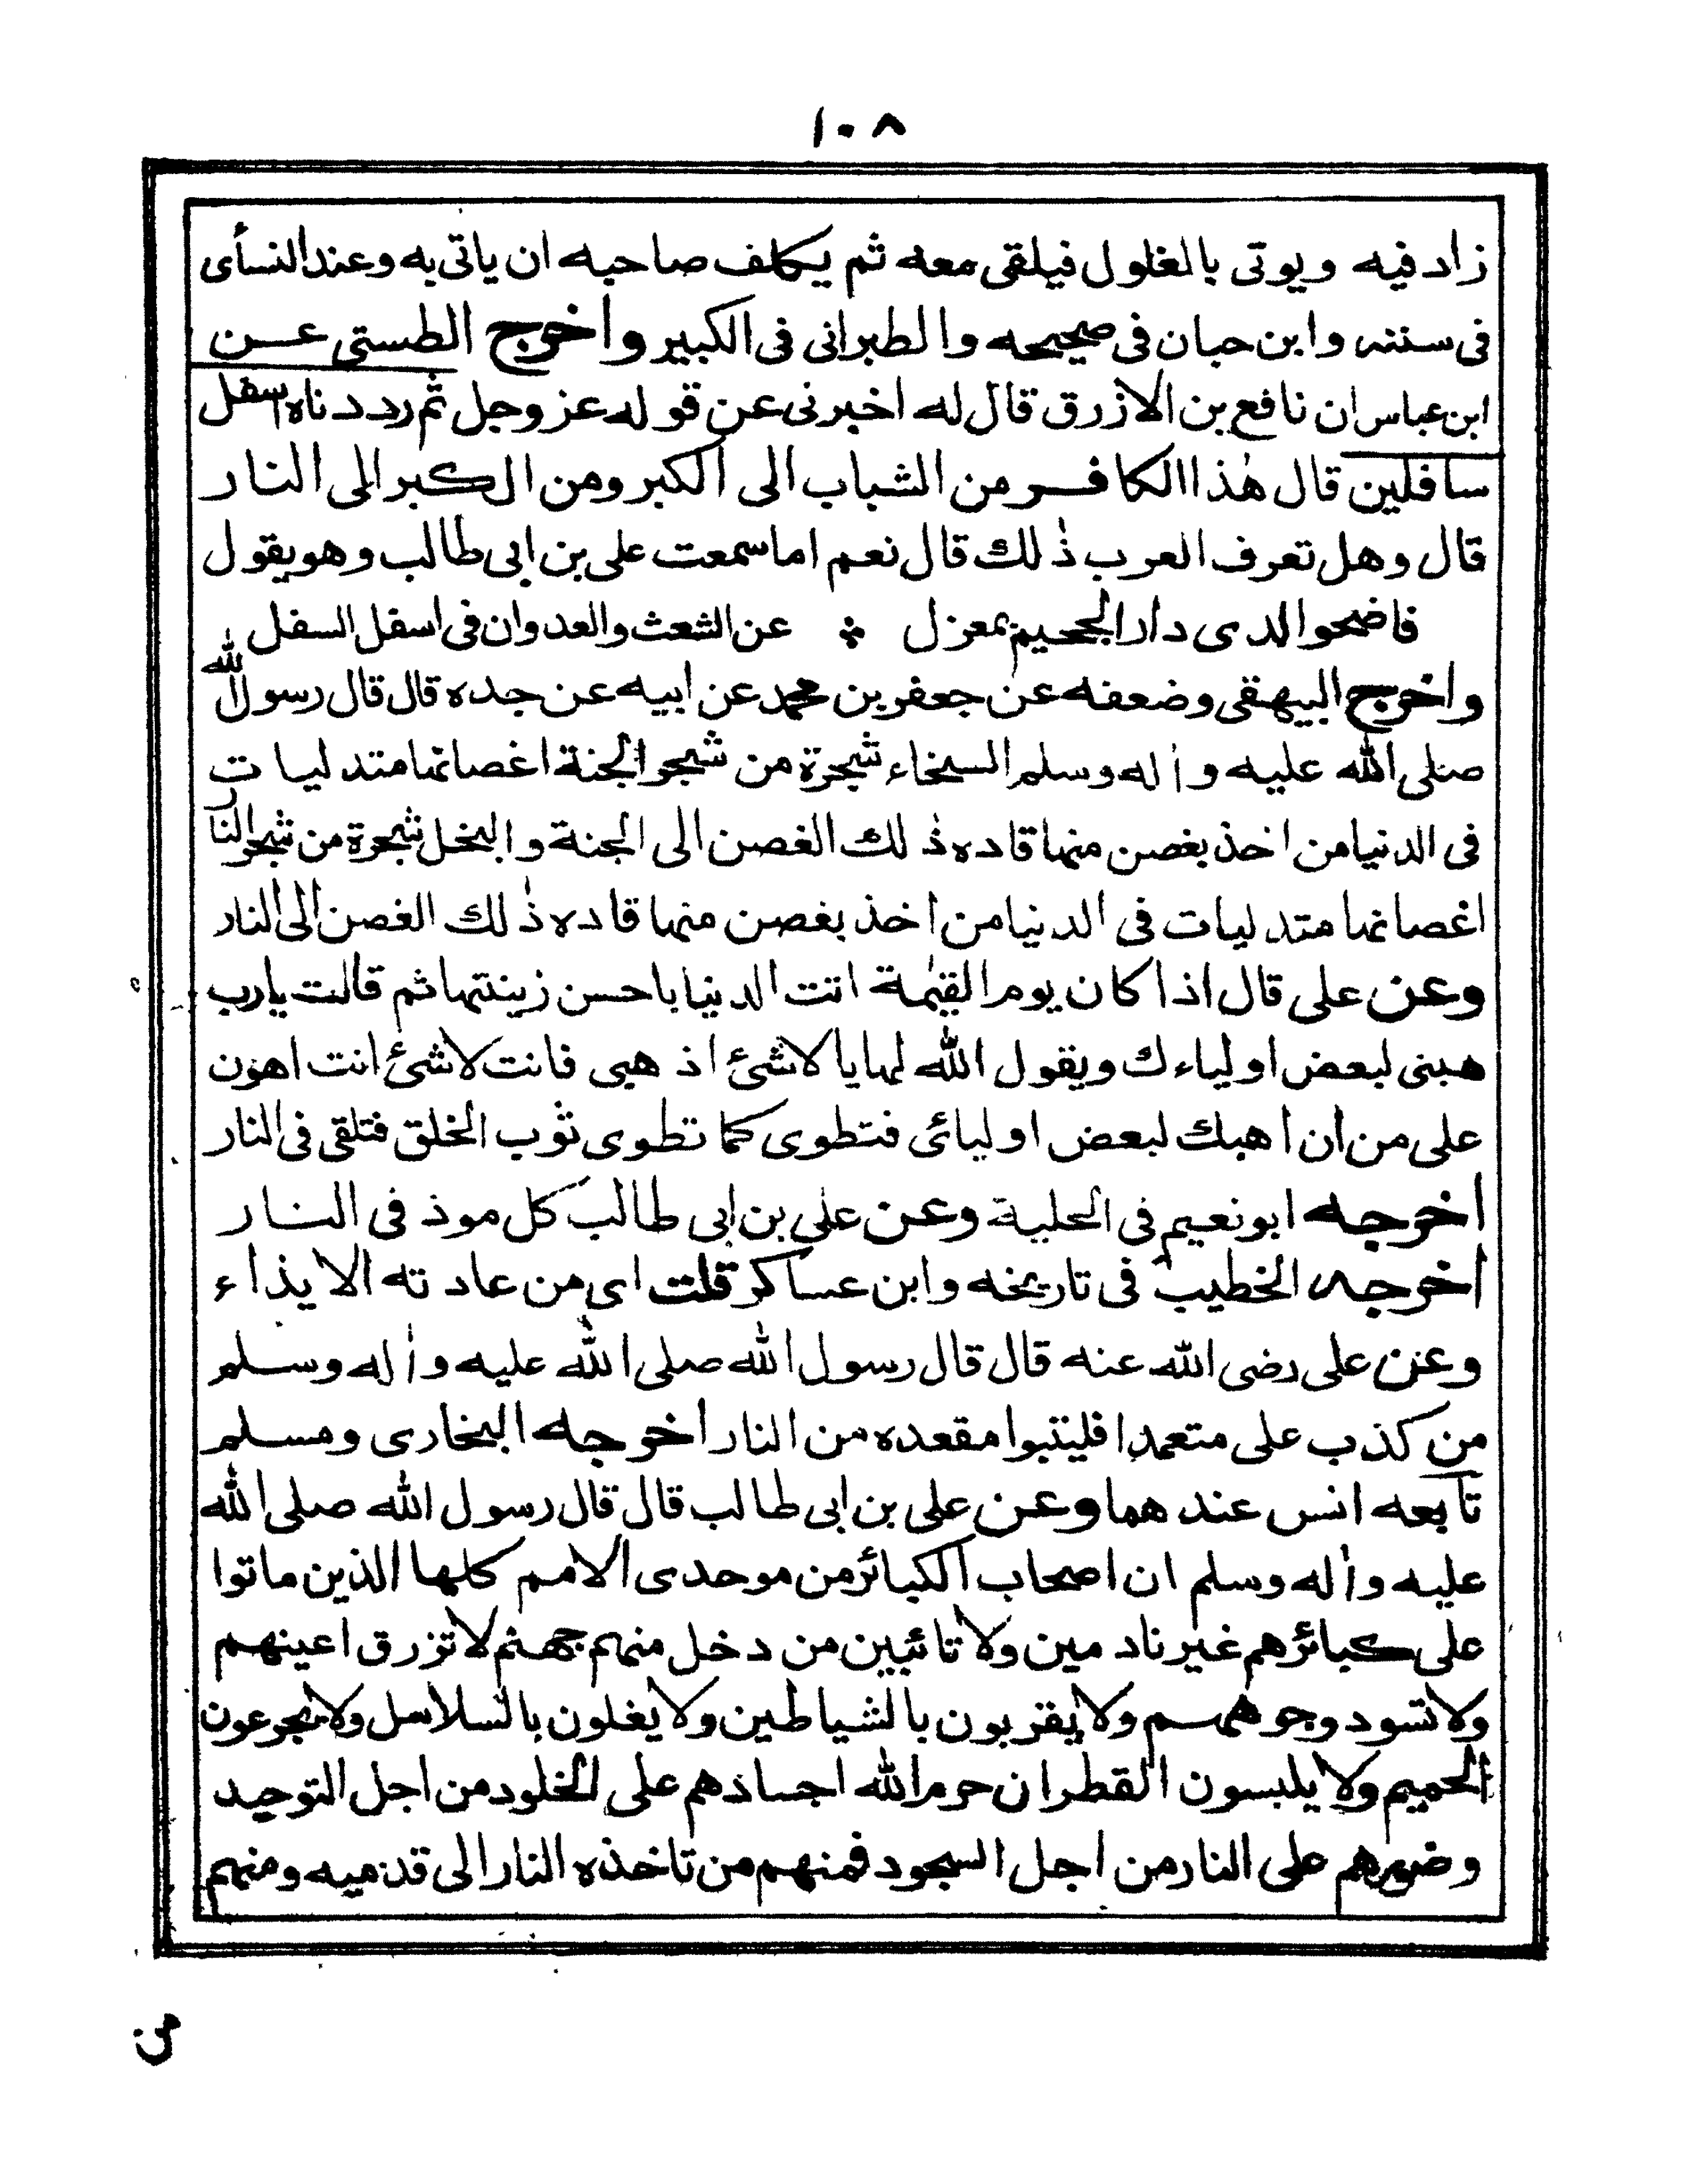 ١٠٨
زاد فيه ويوتى بالغلول فيلقى معه ثم يكلف صاحبه ان ياتى به وعند النسأى
فى سننه وابن حبان فى صحيحه والطبرانى فى الكبير واخرج الطستى عن
ابن عباس ان نافع بن الازرق قال له اخبرنى عن قوله عز وجل ثم رددناه اسفل
سافلين قال هذا الكافر من الشباب الى الكبر ومن الكبر الى النار
قال وهل تعرف العرب ذلك قال نعم اما سمعت على بن ابى طالب وهو يقول
فاضحوا لدى دار الجحيم بمعزل ※ عن الشعث والعدوان فى اسفل السفل
واخرج البيهقى وضعفه عن جعفر بن محمد عن ابيه عن جده قال قال رسول الله
صلى الله عليه واله وسلم السخاء شجرة من شجر الجنة اغصانها متدليات
فى الدنيا من اخذ بغصن منها قاده ذلك الغصن الى الجنة والبخل شجرة من شجر النار
اغصانها متدليات فى الدنيا من اخذ بغصن منها قاده ذلك الغصن الى النار
وعن على قال اذا كان يوم القيمة اتت الدنيا باحسن زينتها ثم قالت يارب
هبنى لبعض اولياءك ويقول الله لها يا لاشئ اذهبى فانت لاشئ انت اهون
على من ان اهبك لبعض اوليائى فتطوى كما تطوى ثوب الخلق فتلقى فى النار
اخرجه ابو نعيم فى الحلية وعن على بن ابى طالب كل موذ فى النار
اخرجه الخطيب فى تاريخه وابن عساكر قلت اى من عادته الايذاء
وعن على رضى الله عنه قال قال رسول الله صلى الله عليه واله وسلم
من كذب على متعمدا فليتبوا مقعده من النار اخرجه البخارى ومسلم
تابعه انس عندهما وعن على بن ابى طالب قال قال رسول الله صلى الله
عليه واله وسلم ان اصحاب الكبائر من موحدى الامم كلها الذين ماتوا
على كبائرهم غير نادمين ولا تائبين من دخل منهم جهنم لا تزرق اعينهم
ولا تسود وجوههم ولا يقربون بالشياطين ولا يغلون بالسلاسل ولا يجرعون
الحميم ولا يلبسون القطران حرم الله اجسادهم على الخلود من اجل التوحيد
وصورهم على النار من اجل السجود فمنهم من تاخذه النار الى قدميه ومنهم
من